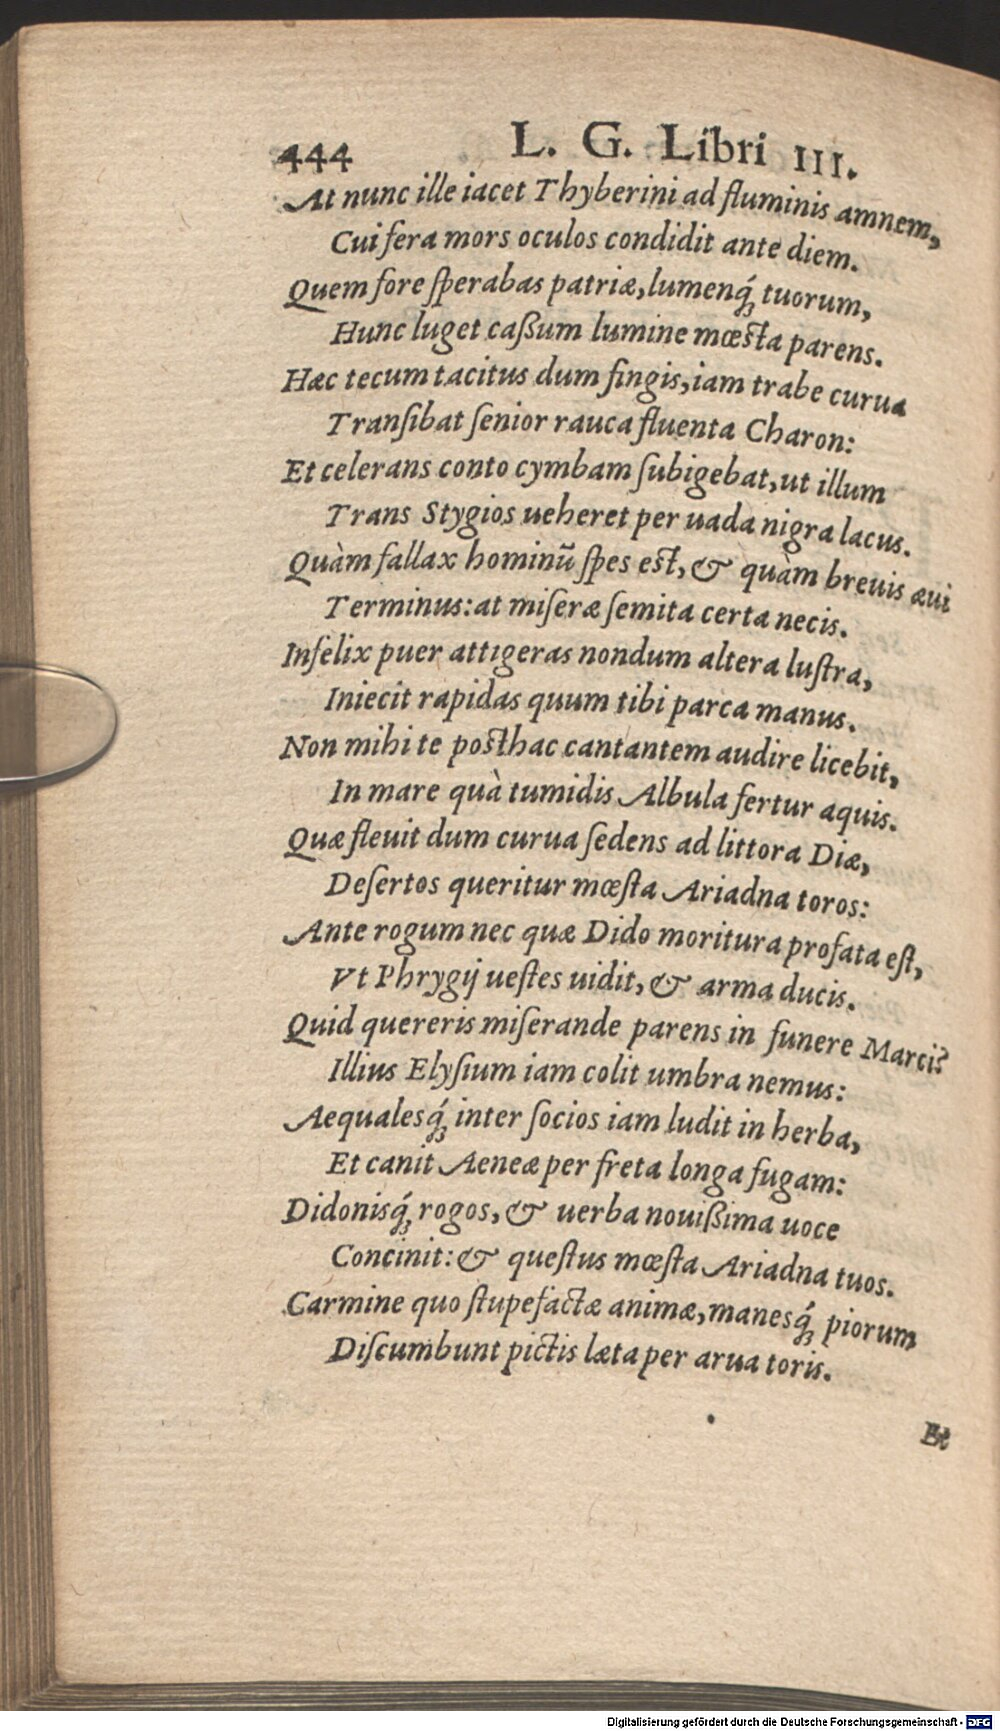 444 L. G. Libri III.
At nunc ille iacet Thyberini ad fluminis amnem,
Cui fera mors oculos condidit ante diem.
Quem fore ſperabas patriæ, lumenq́; tuorum,
Hunc luget caßum lumine mœsta parens.
Hæc tecum tacitus dum fingis, iam trabe curua
Tranſibat ſenior rauca fluenta Charon:
Et celerans conto cymbam ſubigebat, ut illum
Trans Stygios ueheret per uada nigra lacus.
Quàm fallax hominũ ſpes est, & quàm breuis æui
Terminus: at miſeræ ſemita certa necis.
Infelix puer attigeras nondum altera luſtra,
Iniecit rapidas quum tibi parca manus.
Non mihi te posthac cantantem audire licebit,
In mare quà tumidis Albula fertur aquis.
Quæ fleuit dum curua ſedens ad littora Diæ,
Deſertos queritur mœſta Ariadna toros:
Ante rogum nec quæ Dido moritura profata eſt,
Vt Phrygij ueſtes uidit, & arma ducis.
Quid quereris miſerande parens in funere Marci?
Illius Elyſium iam colit umbra nemus:
Aequalesq́; inter ſocios iam ludit in herba,
Et canit Aeneæ per freta longa fugam:
Didonisq́; rogos, & uerba nouißima uoce
Concinit: & queſtus mœſta Ariadna tuos.
Carmine quo ſtupefactæ animæ, manesq́; piorum
Diſcumbunt pictis læta per arua toris.
Et
Digitalisierung gefördert durch die Deutsche Forschungsgemeinschaft - DFG